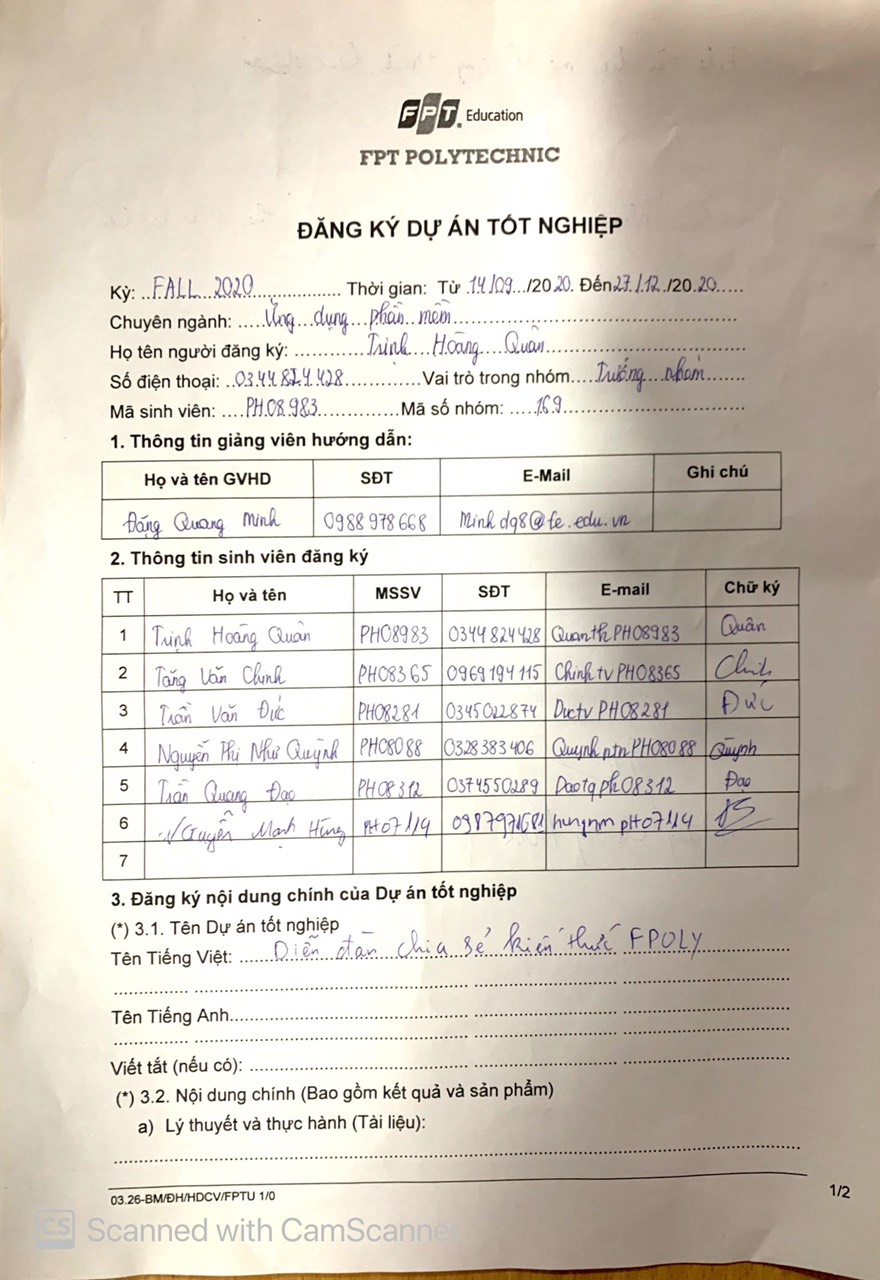 FPT. Education
FPT POLYTECHNIC
ĐĂNG KÝ DỰ ÁN TỐT NGHIỆP
Kỳ: ..FALL 2020.................. Thời gian: Từ 14/09.../2020. Đến 27/.12./20.20.....
Chuyên ngành: .....Ứng dụng phần mềm.....
Họ tên người đăng ký: ............Trịnh Hoàng Quân.....
Số điện thoại: ..0344824428............Vai trò trong nhóm....Trưởng nhóm.......
Mã sinh viên: ....PH08983..............Mã số nhóm: .....169.....
1. Thông tin giảng viên hướng dẫn:
Họ và tên GVHD SĐT E-Mail Ghi chú
Đặng Quang Minh 0988978668 Minhdq8@fe.edu.vn
2. Thông tin sinh viên đăng ký
TT Họ và tên MSSV SĐT E-mail Chữ ký
1 Trịnh Hoàng Quân PH08983 0344824428 QuanthPH08983 Quân
2 Tăng Văn Chính PH08365 0969194115 ChinhtvPH08365 Chính
3 Trần Văn Đức PH08281 0345022874 DuctvPH08281 Đức
4 Nguyễn Thị Như Quỳnh PH08088 0328383406 QuynhptnPH08088 Quỳnh
5 Trần Quang Đạo PH08312 0374550289 Daotqph08312 Đạo
6 Nguyễn Mạnh Hùng PH07114 hungnmpH07114
7
3. Đăng ký nội dung chính của Dự án tốt nghiệp
(*) 3.1. Tên Dự án tốt nghiệp
Tên Tiếng Việt: .....Diễn đàn chia sẻ kiến thức FPOLY.....
Tên Tiếng Anh.....
Viết tắt (nếu có): .....
(*) 3.2. Nội dung chính (Bao gồm kết quả và sản phẩm)
a) Lý thuyết và thực hành (Tài liệu):
03.26-BM/ĐH/HDCV/FPTU 1/0 1/2
CS Scanned with CamScanner